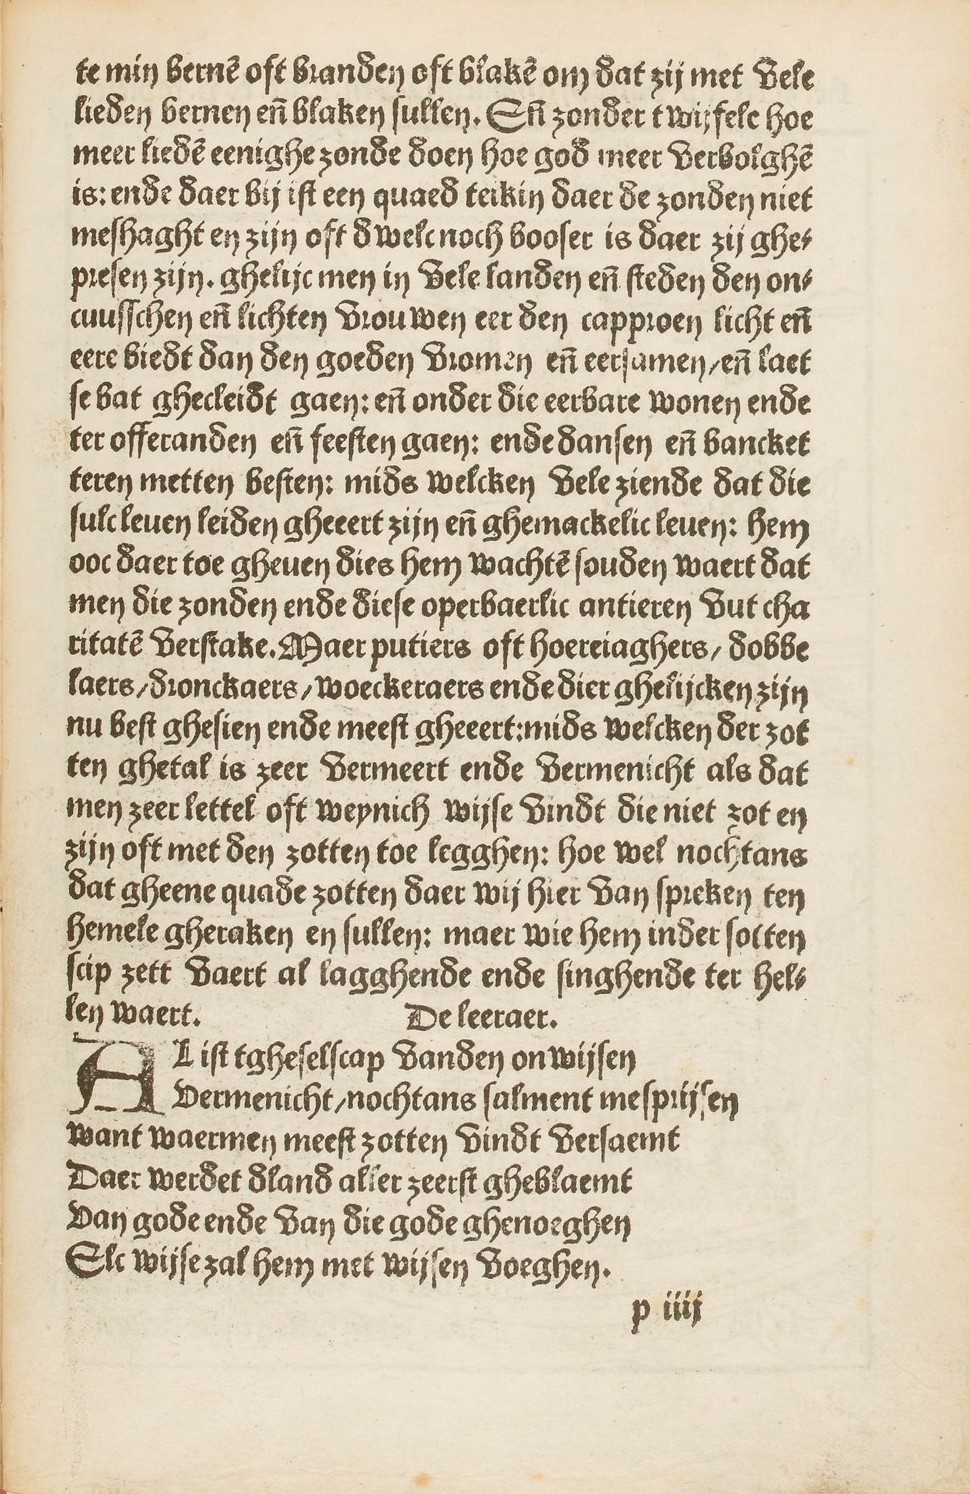 te min bernē oft branden oft blakē om dat zij met vele
lieden bernen en̄ blaken sullen. En̄ zonder twijfele hoe
meer liedē eenighe zonde doen hoe god meer verbolghē
is: ende daer bij ist een quaed teikin daer de zonden niet
meshaght en zijn oft dwelc noch booser is daer zij ghe⸗
presen zijn. ghelijc men in vele landen en̄ steden den on⸗
cuusschen en̄ lichten vrouwen eer den capproen licht en̄
eere biedt dan den goeden vromen en̄ eersamen/en̄ laet
se bat ghecleidt gaen: en̄ onder die eerbare wonen ende
ter offeranden en̄ feesten gaen: ende dansen en̄ bancket
teren metten besten: mids welcken vele ziende dat die
sulc leuen leiden gheeert zijn en̄ ghemackelic leuen: hem
ooc daer toe gheuen dies hem wachtē souden waert dat
men die zonden ende diese openbaerlic antieren vut cha
ritatē verstake. Maer putiers oft hoereiaghers/ dobbe
laers/dronckaers/woeckeraers ende dier ghelijcken zijn
nu best ghesien ende meest gheeert:mids welcken der zot
ten ghetal is zeer vermeert ende vermenicht als dat
men zeer lettel oft weynich wijse vindt die niet zot en
zijn oft met den zotten toe legghen: hoe wel nochtans
dat gheene quade zotten daer wij hier van spreken ten
hemele gheraken en sullen: maer wie hem inder sotten
scip zett vaert al lagghende ende singhende ter hel⸗
len waert. De leeraer.
AL ist tgheselscap vanden onwijsen
Vermenicht/nochtans salment mesprijsen
Want waermen meest zotten vindt versaemt
Daer werdet dland aller zeerst gheblaemt
Van gode ende van die gode ghenoeghen
Elc wijse zal hem met wijsen voeghen.
p iiij